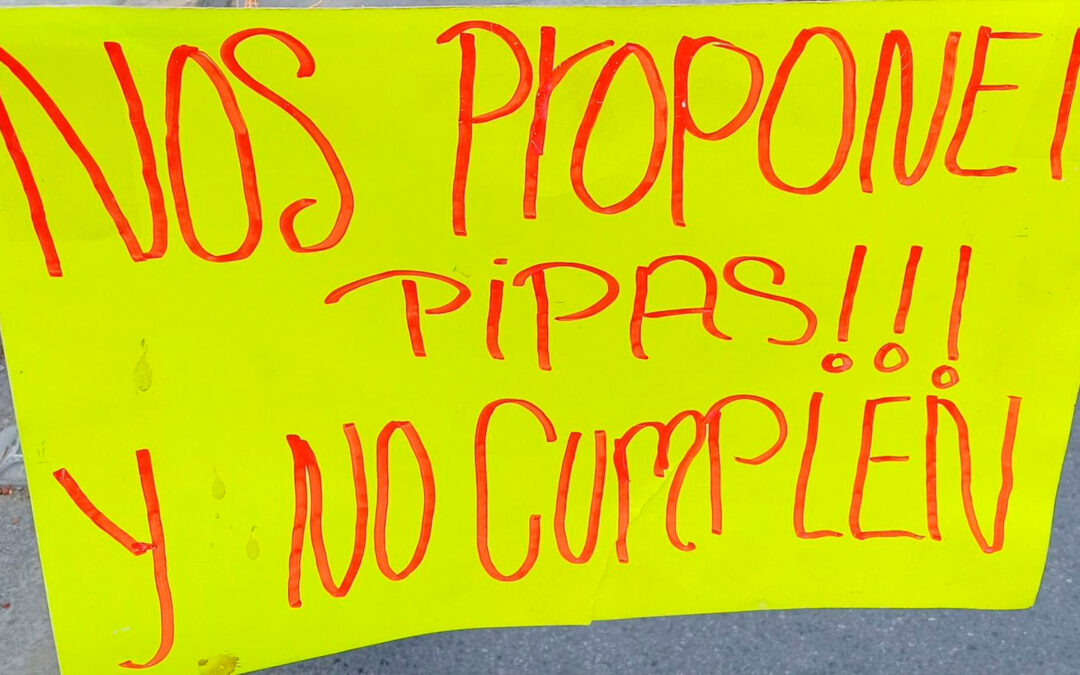 NOS PrOPONEN
PiPAS!!!
Y NO CUMPLEN